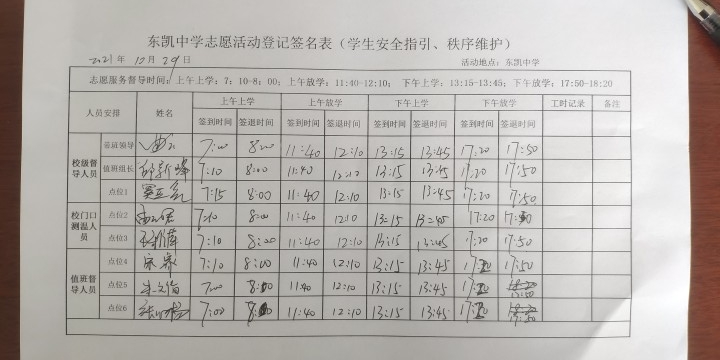 东凯中学志愿活动登记签名表（学生安全指引、秩序维护）
2021年10月29日 活动地点：东凯中学
志愿服务督导时间：上午上学：7：10-8：00； 上午放学：11:40-12:10； 下午上学：13:15-13:45； 下午放学：17:50-18:20
人员安排 姓名 上午上学 上午放学 下午上学 下午放学 工时记录 备注
签到时间 签退时间 签到时间 签退时间 签到时间 签退时间 签到时间 签退时间
校级督导人员 带班领导 7:00 8:00 11:40 12:10 13:15 13:45 17:20 17:50
值班组长 7:10 8:00 11:40 12:10 13:15 13:45 17:20 17:50
点位1 7:15 8:00 11:40 12:10 13:15 13:45 17:20 17:50
校门口测温人员 点位2 7:10 8:00 11:40 12:10 13:15 13:45 17:20 17:50
点位3 7:10 8:00 11:40 12:10 13:15 17:20 17:50
值班督导人员 点位4 7:10 8:00 11:40 12:10 13:15 13:45 17:50
点位5 7:00 8:00 11:40 12:10 13:15 13:45
点位6 7:00 8:00 11:40 12:10 13:15 13:45